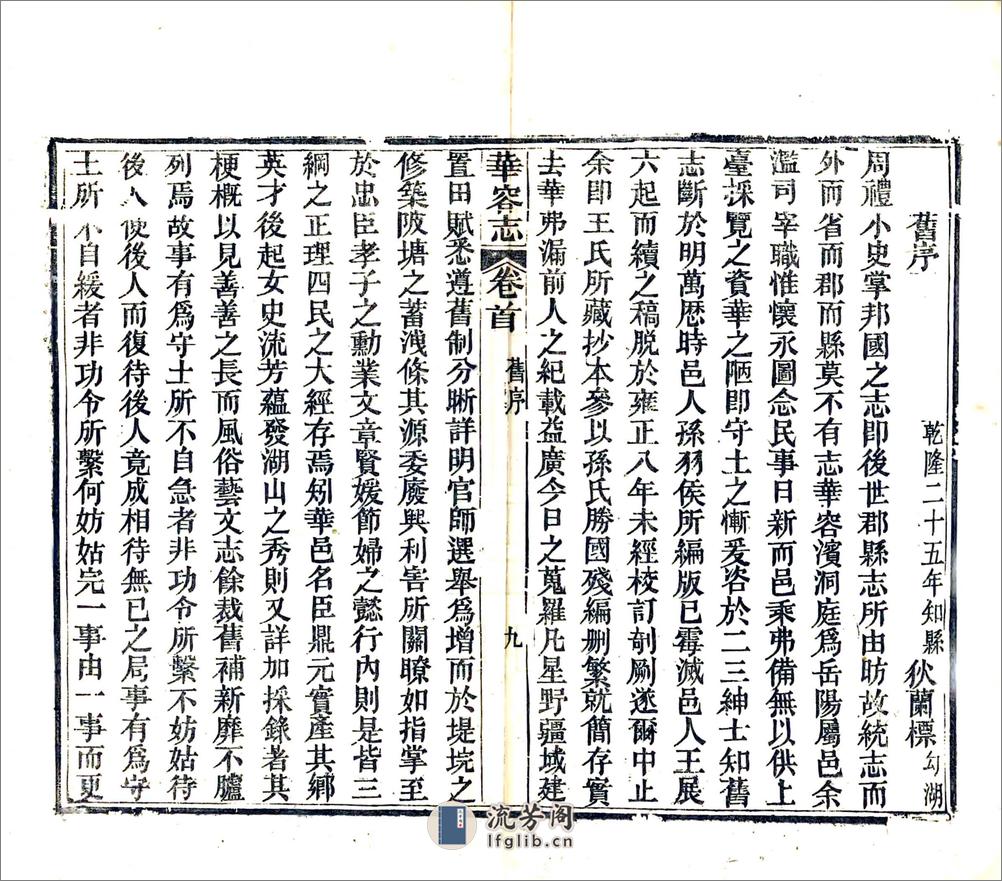 舊序
乾隆二十五年知縣狄蘭標勾湖
周禮小史掌邦國之志即後世郡縣志所由昉故統志而
外而省而郡而縣莫不有志華容濱洞庭爲岳陽屬邑余
濫司宰職惟懷永圖念民事日新而邑乘弗備無以供上
臺採覽之資華之陋即守土之慚爰咨於二三紳士知舊
志斷於明萬厯時邑人孫羽侯所編版已霉滅邑人王展
六起而續之稿脫於雍正八年未經校訂剞劂遂爾中止
余即王氏所藏抄本參以孫氏勝國殘編删繁就簡存實
去華弗漏前人之紀載益廣今日之蒐羅凡星野疆域建
華容志
卷首
舊序
九
置田賦悉遵舊制分晰詳明官師選舉爲增而於堤垸之
修築陂塘之蓄洩條其源委廢興利害所關瞭如指掌至
於忠臣孝子之勳業文章賢媛節婦之懿行內則是皆三
綱之正理四民之大經存焉矧華邑名臣鼎元實產其鄉
英才後起女史流芳蘊發湖山之秀則又詳加採錄者其
梗概以見善善之長而風俗藝文志餘裁舊補新靡不臚
列焉故事有爲守土所不自急者非功令所繫不妨姑待
後人使後人而復待後人竟成相待無已之局事有爲守
土所不自緩者非功令所繫何妨姑完一事由一事而更
流芳阁
lfglib.cn